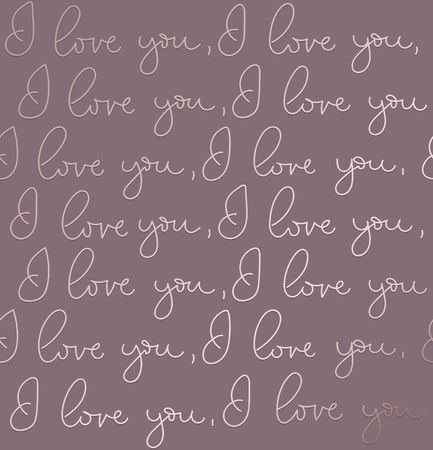 I love you, I love you,
I love you, I love you
I love you, I love you,
I love you, I love you,
I love you, I love you
I love you, I love you,
I love you, I love you,